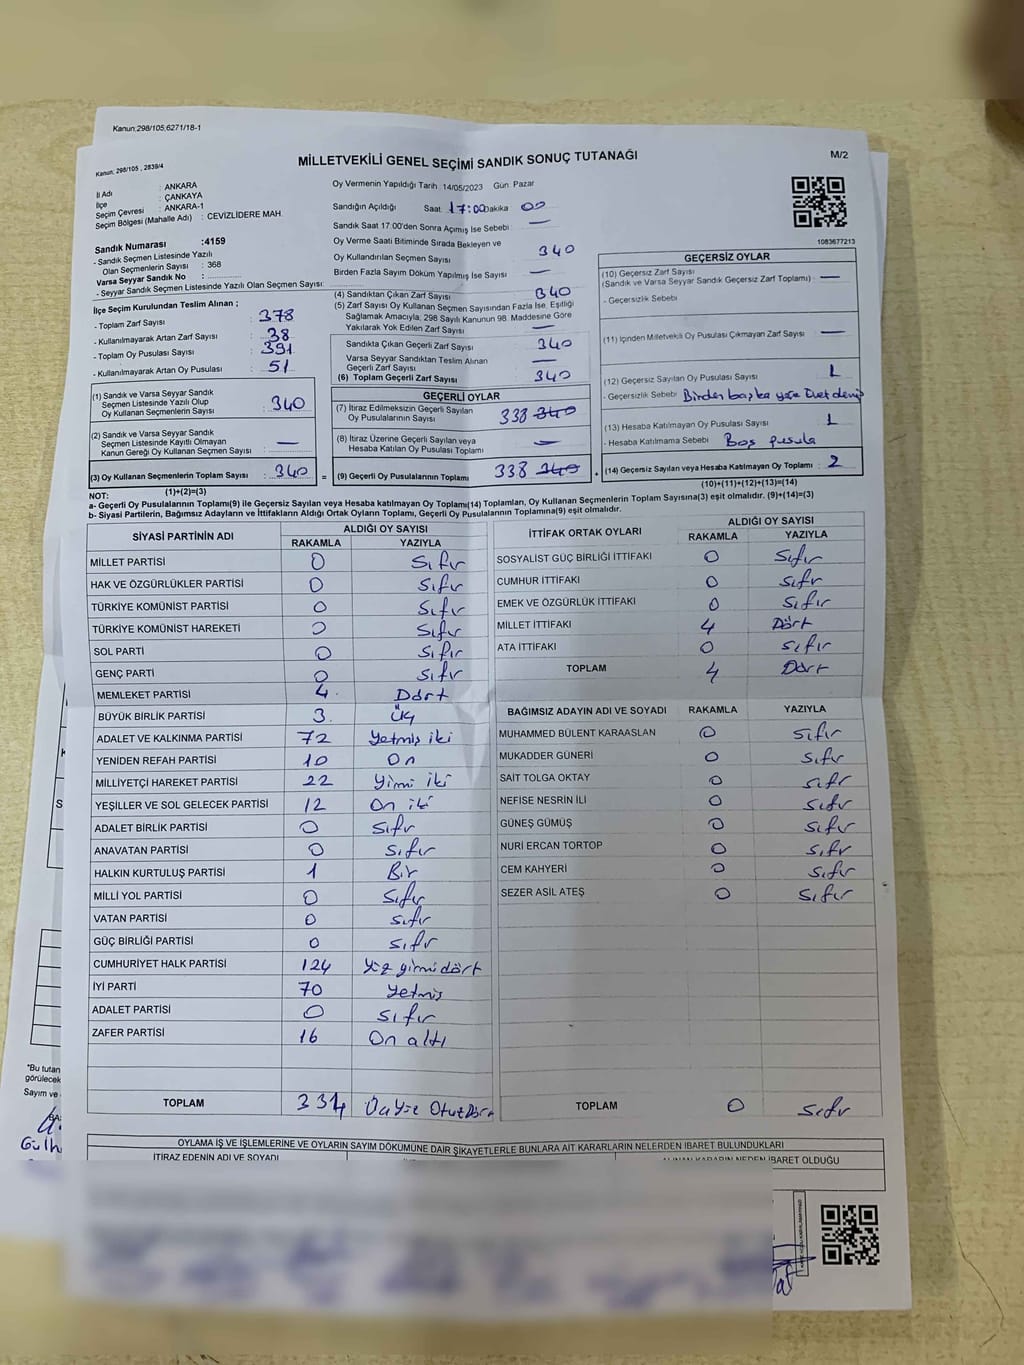 Kanun;298/105;6271/18-1
Kanun; 298/105 , 2839/4
MİLLETVEKİLİ GENEL SEÇİMİ SANDIK SONUÇ TUTANAĞI
M/2
İl Adı : ANKARA
İlçe : ÇANKAYA
Seçim Çevresi : ANKARA-1
Seçim Bölgesi (Mahalle Adı) : CEVİZLİDERE MAH.
Sandık Numarası :4159
- Sandık Seçmen Listesinde Yazılı
Olan Seçmenlerin Sayısı : 368
Varsa Seyyar Sandık No :
- Seyyar Sandık Seçmen Listesinde Yazılı Olan Seçmen Sayısı:
İlçe Seçim Kurulundan Teslim Alınan ;
- Toplam Zarf Sayısı : 378
- Kullanılmayarak Artan Zarf Sayısı : 38
- Toplam Oy Pusulası Sayısı : 391
- Kullanılmayarak Artan Oy Pusulası : 51
(1) Sandık ve Varsa Seyyar Sandık
Seçmen Listesinde Yazılı Olup
Oy Kullanan Seçmenlerin Sayısı : 340
(2) Sandık ve Varsa Seyyar Sandık
Seçmen Listesinde Kayıtlı Olmayan
Kanun Gereği Oy Kullanan Seçmen Sayısı : —
(3) Oy Kullanan Seçmenlerin Toplam Sayısı : 340
(1)+(2)=(3)
Oy Vermenin Yapıldığı Tarih 14/05/2023 Gün Pazar
Sandığın Açıldığı Saat 17:00 Dakika 00
Sandık Saat 17.00'den Sonra Açımış İse Sebebi : —
Oy Verme Saati Bitiminde Sırada Bekleyen ve
Oy Kullandırılan Seçmen Sayısı 340
Birden Fazla Sayım Döküm Yapılmış İse Sayısı : —
(4) Sandıktan Çıkan Zarf Sayısı : 340
(5) Zarf Sayısı Oy Kullanan Seçmen Sayısından Fazla İse, Eşitliği
Sağlamak Amacıyla, 298 Sayılı Kanunun 98. Maddesine Göre
Yakılarak Yok Edilen Zarf Sayısı : —
Sandıkta Çıkan Geçerli Zarf Sayısı : 340
Varsa Seyyar Sandıktan Teslim Alınan
Geçerli Zarf Sayısı : —
(6) Toplam Geçerli Zarf Sayısı : 340
GEÇERLİ OYLAR
(7) İtiraz Edilmeksizin Geçerli Sayılan
Oy Pusulalarının Sayısı : 338 340
(8) İtiraz Üzerine Geçerli Sayılan veya
Hesaba Katılan Oy Pusulası Toplamı : —
= (9) Geçerli Oy Pusulalarının Toplamı : 338 340
1083677213
GEÇERSİZ OYLAR
(10) Geçersiz Zarf Sayısı
(Sandık ve Varsa Seyyar Sandık Geçersiz Zarf Toplamı) : —
- Geçersizlik Sebebi
(11) İçinden Milletvekili Oy Pusulası Çıkmayan Zarf Sayısı : —
(12) Geçersiz Sayılan Oy Pusulası Sayısı : 1
- Geçersizlik Sebebi : Birden başka yere Evet demiş
(13) Hesaba Katılmayan Oy Pusulası Sayısı : 1
- Hesaba Katılmama Sebebi : Boş pusula
+ (14) Geçersiz Sayılan veya Hesaba Katılmayan Oy Toplamı : 2
(10)+(11)+(12)+(13)=(14)
NOT:
a- Geçerli Oy Pusulalarının Toplamı(9) ile Geçersiz Sayılan veya Hesaba katılmayan Oy Toplamı(14) Toplamları, Oy Kullanan Seçmenlerin Toplam Sayısına(3) eşit olmalıdır. (9)+(14)=(3)
b- Siyasi Partilerin, Bağımsız Adayların ve İttifakların Aldığı Ortak Oyların Toplamı, Geçerli Oy Pusulalarının Toplamına(9) eşit olmalıdır.
SİYASİ PARTİNİN ADI ALDIĞI OY SAYISI
RAKAMLA YAZIYLA
MİLLET PARTİSİ 0 Sıfır
HAK VE ÖZGÜRLÜKLER PARTİSİ 0 Sıfır
TÜRKİYE KOMÜNİST PARTİSİ 0 Sıfır
TÜRKİYE KOMÜNİST HAREKETİ 0 Sıfır
SOL PARTİ 0 Sıfır
GENÇ PARTİ 0 Sıfır
MEMLEKET PARTİSİ 4 Dört
BÜYÜK BİRLİK PARTİSİ 3 Üç
ADALET VE KALKINMA PARTİSİ 72 Yetmiş iki
YENİDEN REFAH PARTİSİ 10 On
MİLLİYETÇİ HAREKET PARTİSİ 22 Yirmi iki
YEŞİLLER VE SOL GELECEK PARTİSİ 12 On iki
ADALET BİRLİK PARTİSİ 0 Sıfır
ANAVATAN PARTİSİ 0 Sıfır
HALKIN KURTULUŞ PARTİSİ 1 Bir
MİLLİ YOL PARTİSİ 0 Sıfır
VATAN PARTİSİ 0 Sıfır
GÜÇ BİRLİĞİ PARTİSİ 0 Sıfır
CUMHURİYET HALK PARTİSİ 124 Yüz yirmi dört
İYİ PARTİ 70 Yetmiş
ADALET PARTİSİ 0 Sıfır
ZAFER PARTİSİ 16 On altı
TOPLAM 334 Üçyüz Otuz Dört
İTTİFAK ORTAK OYLARI ALDIĞI OY SAYISI
RAKAMLA YAZIYLA
SOSYALİST GÜÇ BİRLİĞİ İTTİFAKI 0 Sıfır
CUMHUR İTTİFAKI 0 Sıfır
EMEK VE ÖZGÜRLÜK İTTİFAKI 0 Sıfır
MİLLET İTTİFAKI 4 Dört
ATA İTTİFAKI 0 Sıfır
TOPLAM 4 Dört
BAĞIMSIZ ADAYIN ADI VE SOYADI RAKAMLA YAZIYLA
MUHAMMED BÜLENT KARAASLAN 0 Sıfır
MUKADDER GÜNERİ 0 Sıfır
SAİT TOLGA OKTAY 0 Sıfır
NEFİSE NESRİN İLİ 0 Sıfır
GÜNEŞ GÜMÜŞ 0 Sıfır
NURİ ERCAN TORTOP 0 Sıfır
CEM KAHYERİ 0 Sıfır
SEZER ASİL ATEŞ 0 Sıfır
TOPLAM 0 Sıfır
*Bu tutan
görülecek
Sayım ve
Gülh
OYLAMA İŞ VE İŞLEMLERİNE VE OYLARIN SAYIM DÖKÜMÜNE DAİR ŞİKAYETLERLE BUNLARA AİT KARARLARIN NELERDEN İBARET BULUNDUKLARI
İTİRAZ EDENİN ADI VE SOYADI ALINAN KARARIN NEDEN İBARET OLDUĞU